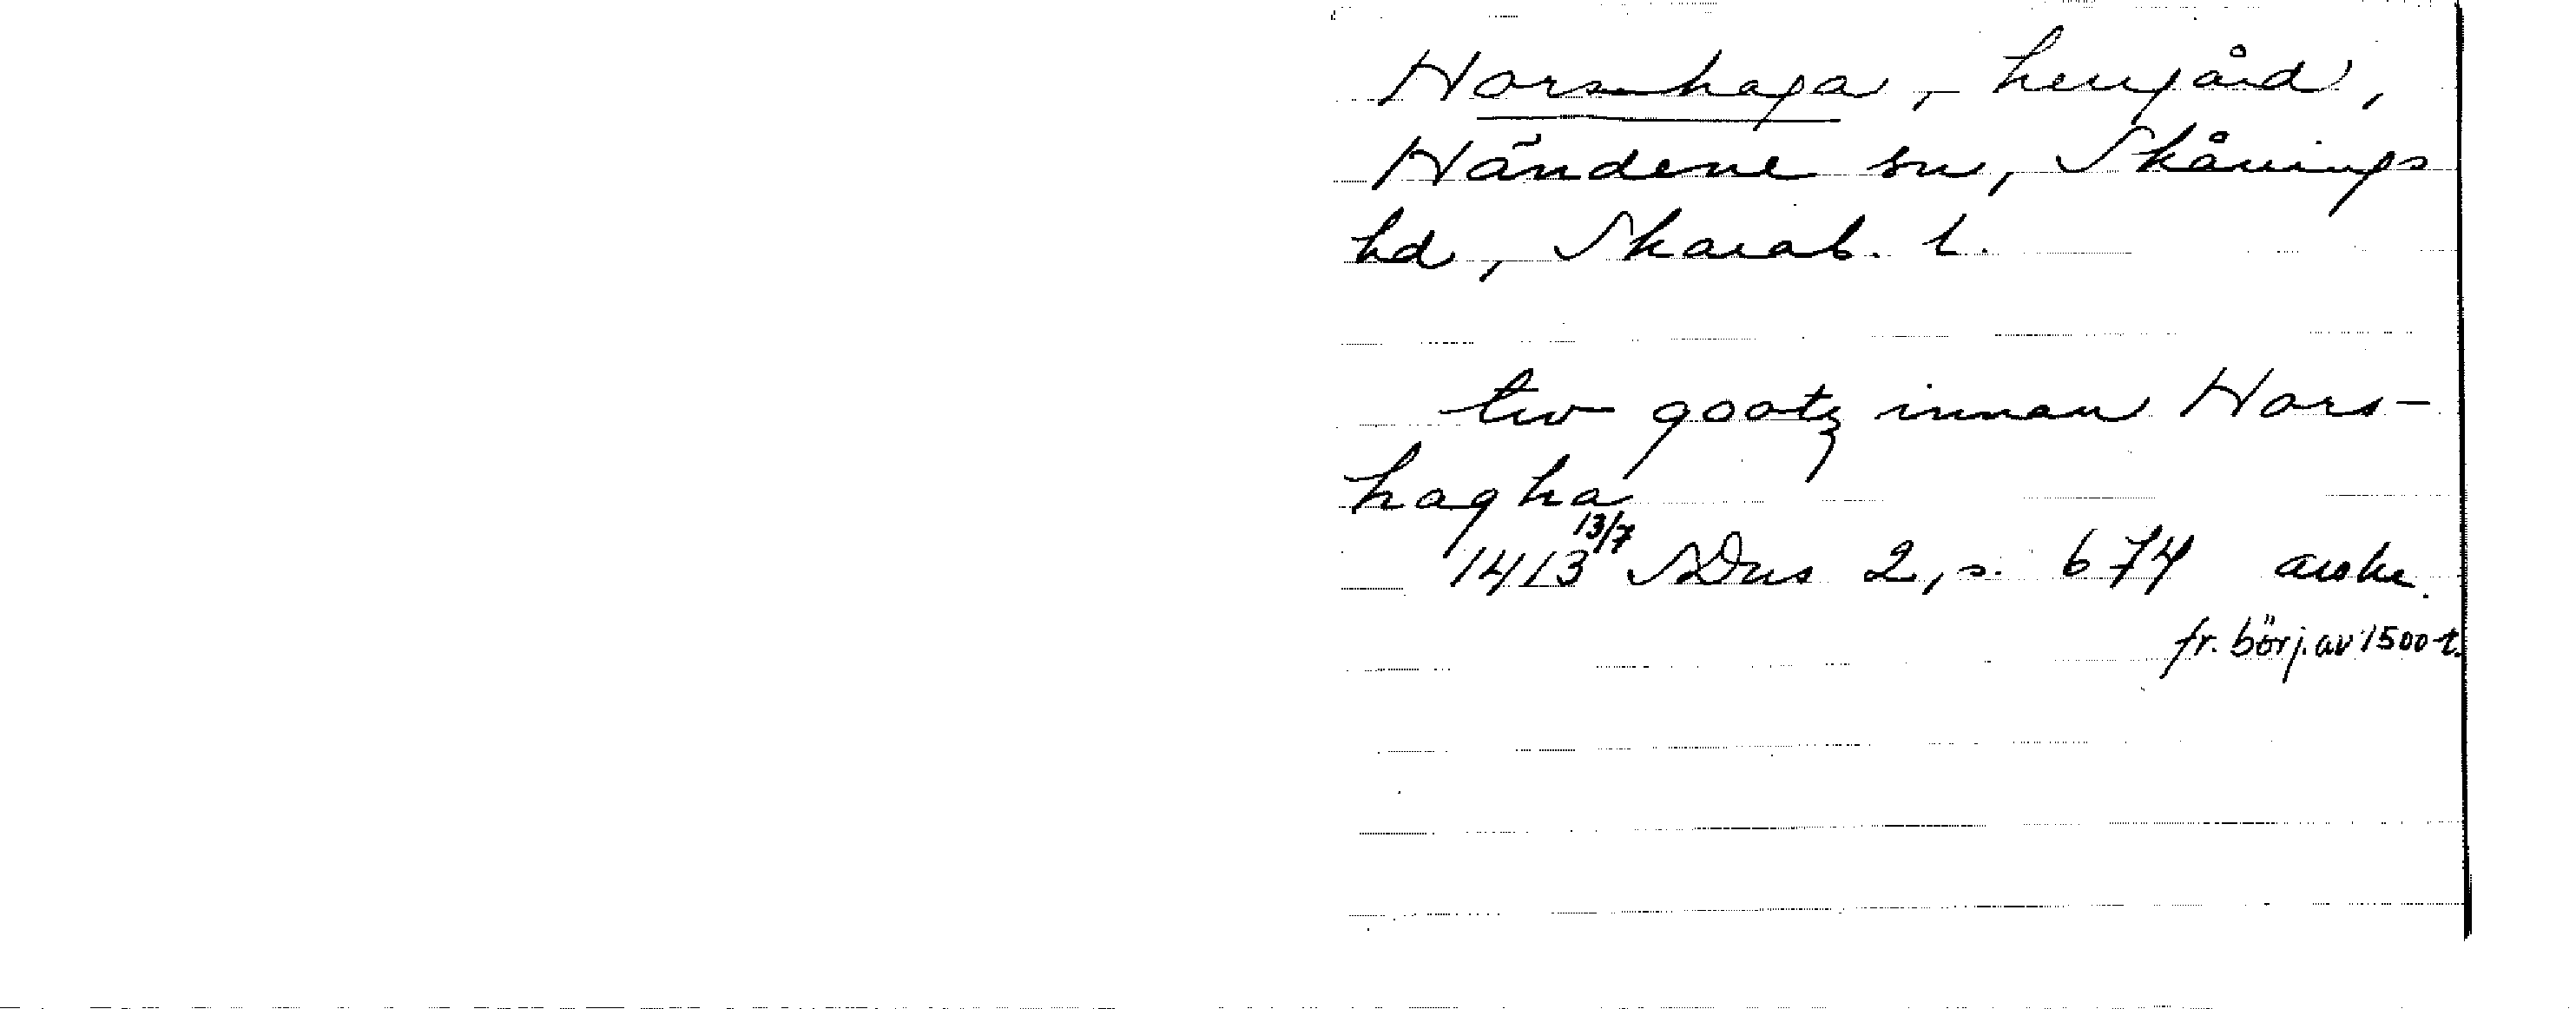 Horshaga, herrgård,
Händene sn, Skånings
hd, Skarab. l.
tw gootz innan Hors-
hagha
1413 13/7 SDns 2, s. 674 avskr.
fr. börj. av 1500-t.